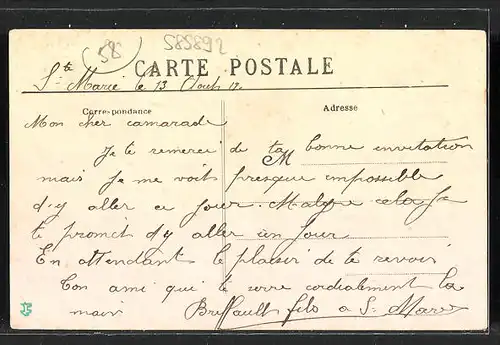 58
585892
CARTE POSTALE
Ste Marie le 13 Aout 12.
Correspondance
Adresse
Mon cher camarade
Je te remerci de ta bonne invitation
M
mais Je me voit presque impossible
d'y aller ce Jour. Malgre cela Je
te promet d'y aller un Jour
En attendant le plaisir de te revoir
Ton ami qui te serre cordialement la
main fils a St Marie